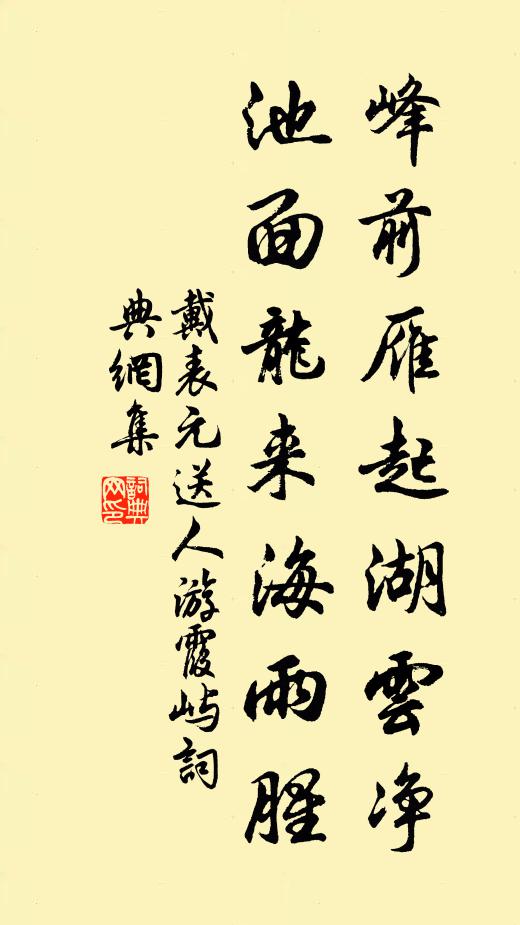 峰前雁起湖雲净
池面龍来海雨腥
戴表元送人游霞屿詞
典網集
詞典网印